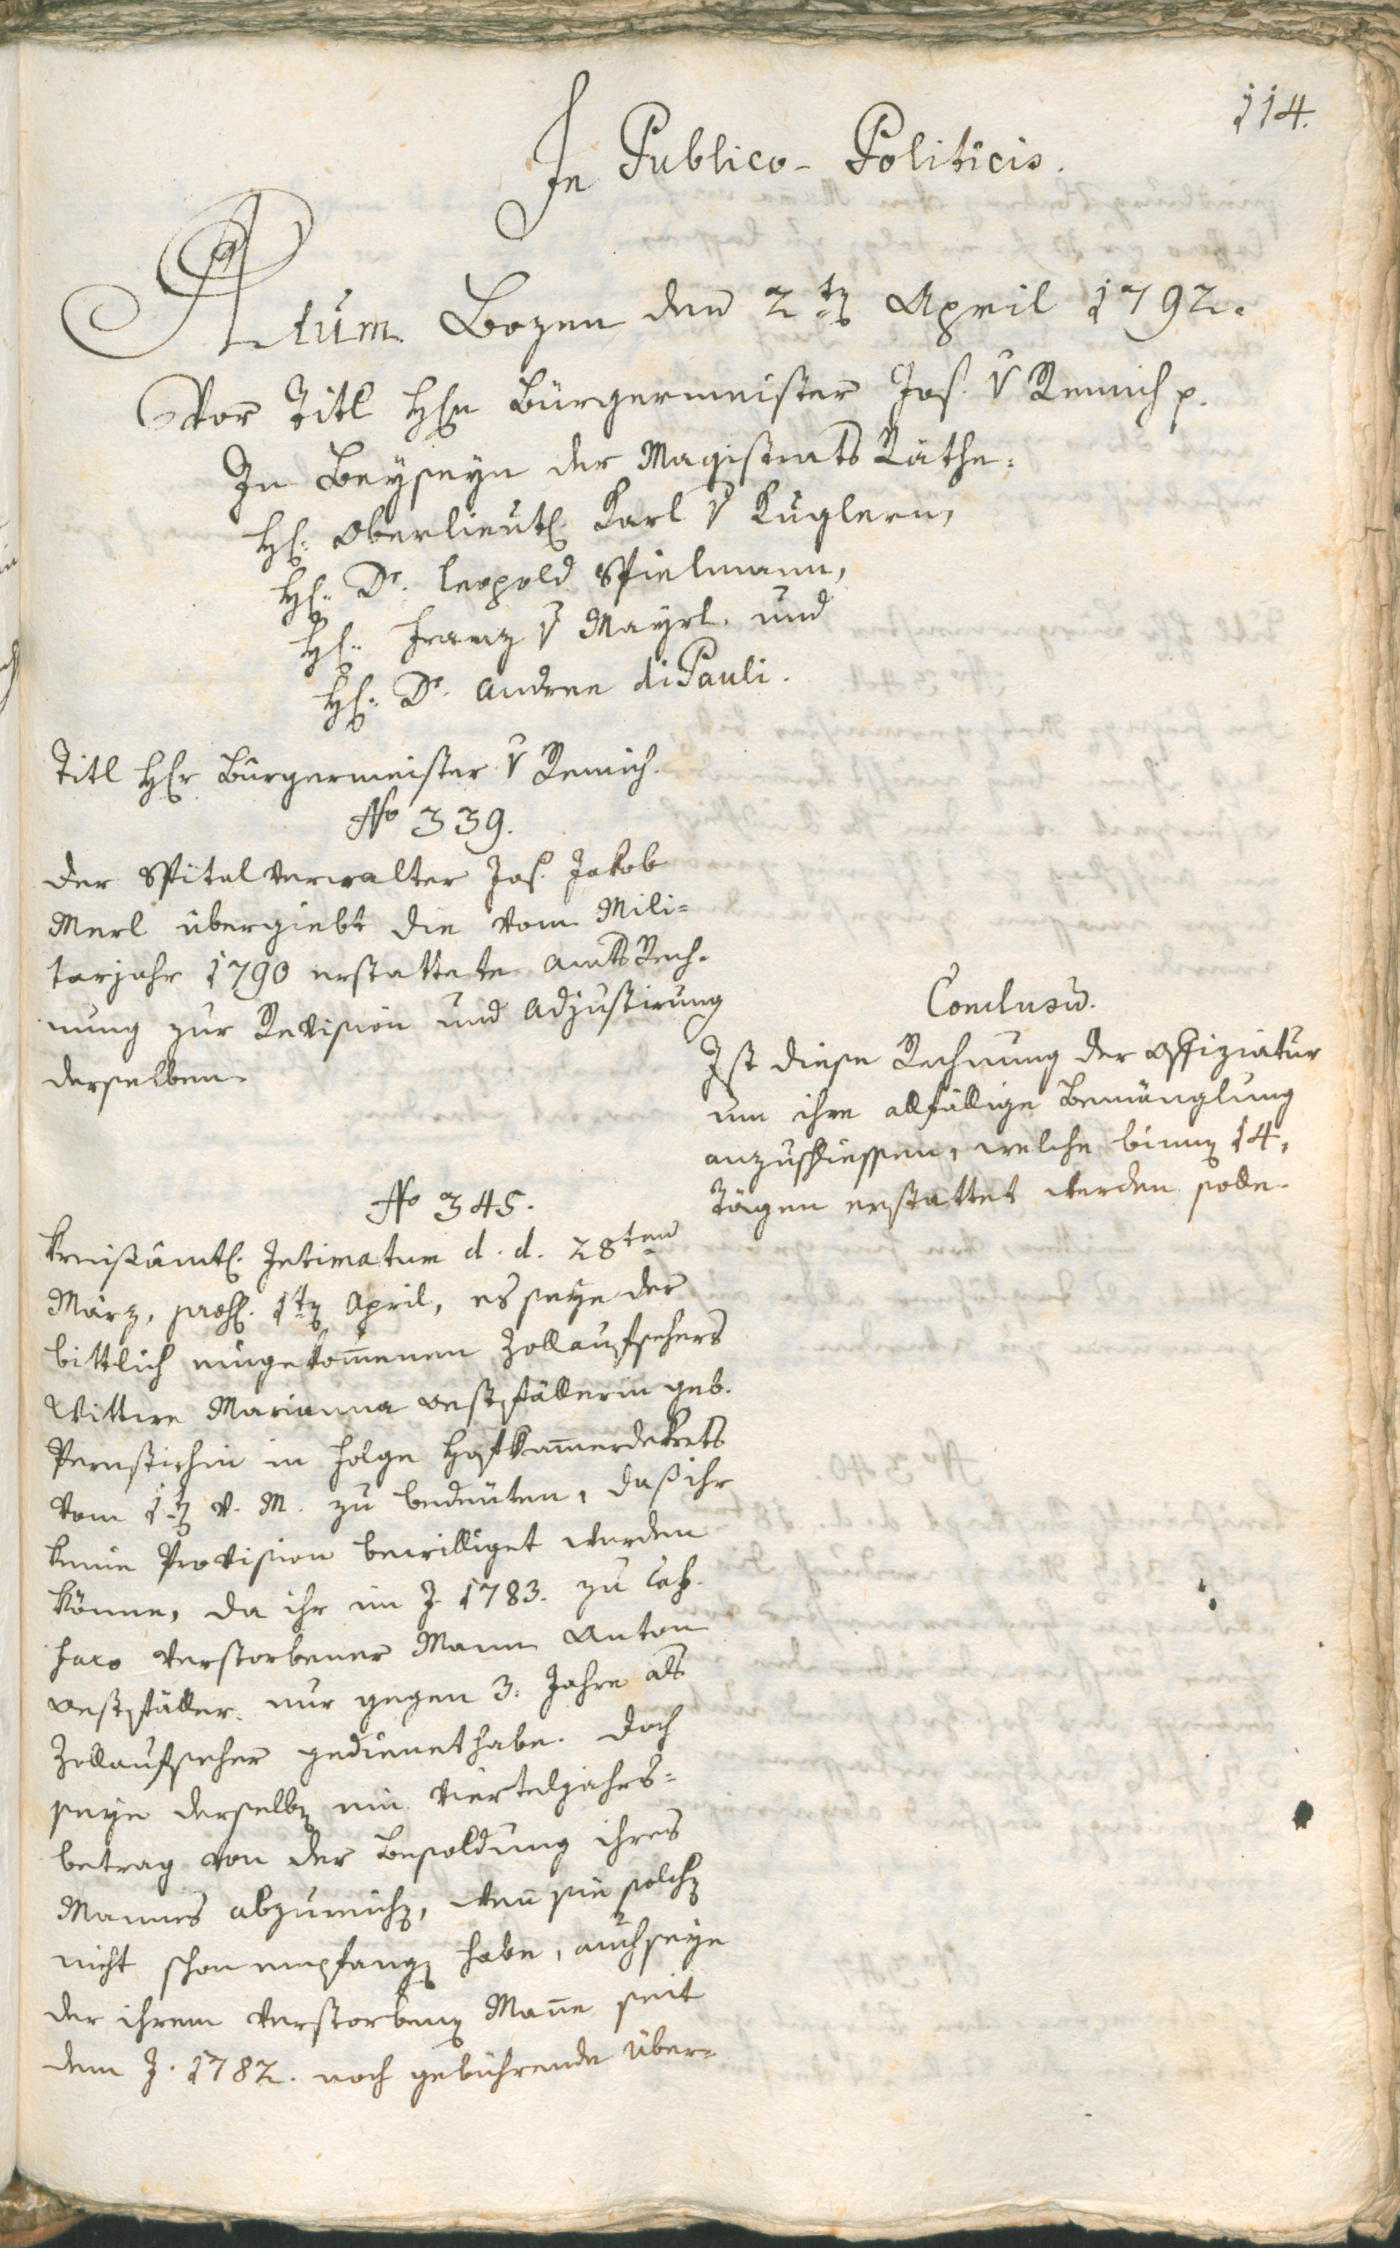 114.
In Publico-Politicis.
Actum Bozen den 2t April 1792.
Vor Titl Hhn Bürgermeister Jos. v Remich p.
In Beyseyn der Magistrats Räthe:
H: Oberlieut: Karl v Kuglern,
H: Dr. Leopold Spielmann,
H: Franz v Mayrl. und
H: Dr. Andree di Pauli.
Titl Hhr Bürgermeister v Remich.
No 339.
Der Spitalverwalter Jos. Jakob
Merl übergiebt die vom Mili=
tarjahr 1790 erstattete Amts Rech=
nung zur Revision und Adjustirung
derselben.
Conclusū.
Ist diese Rechnung der Offiziatur
um ihre allfällige Bemänglung
anzuschliessen, welche binnen 14,
Tägen erstattet werden solle.
No 345.
Kreisämtl. Intimatum d. d. 28ten
März, 1t April, es seye der
bittlich eingekom̄enen Zollaufsehers
Wittwe Marianna Ostställerin geb.
Pernstichin in Folge Hofkam̄erdekrets
vom 1t v. M. zu bedeuten, daß ihr
keine Provision bewilliget werden
könne, da ihr im J. 1783. zu
verstorbener Mann Anton
Ostställer nur gegen 3. Jahre als
Zollaufseher gedienet habe. Doch
seye derselben ein Vierteljahrs=
betrag von der Besoldung ihres
Mannes abzureichen, wen̄ sie solchen
nicht schon empfangen habe, auch seye
der ihrem verstorbenen Man̄e seit
dem J. 1782. noch gebührende Über=